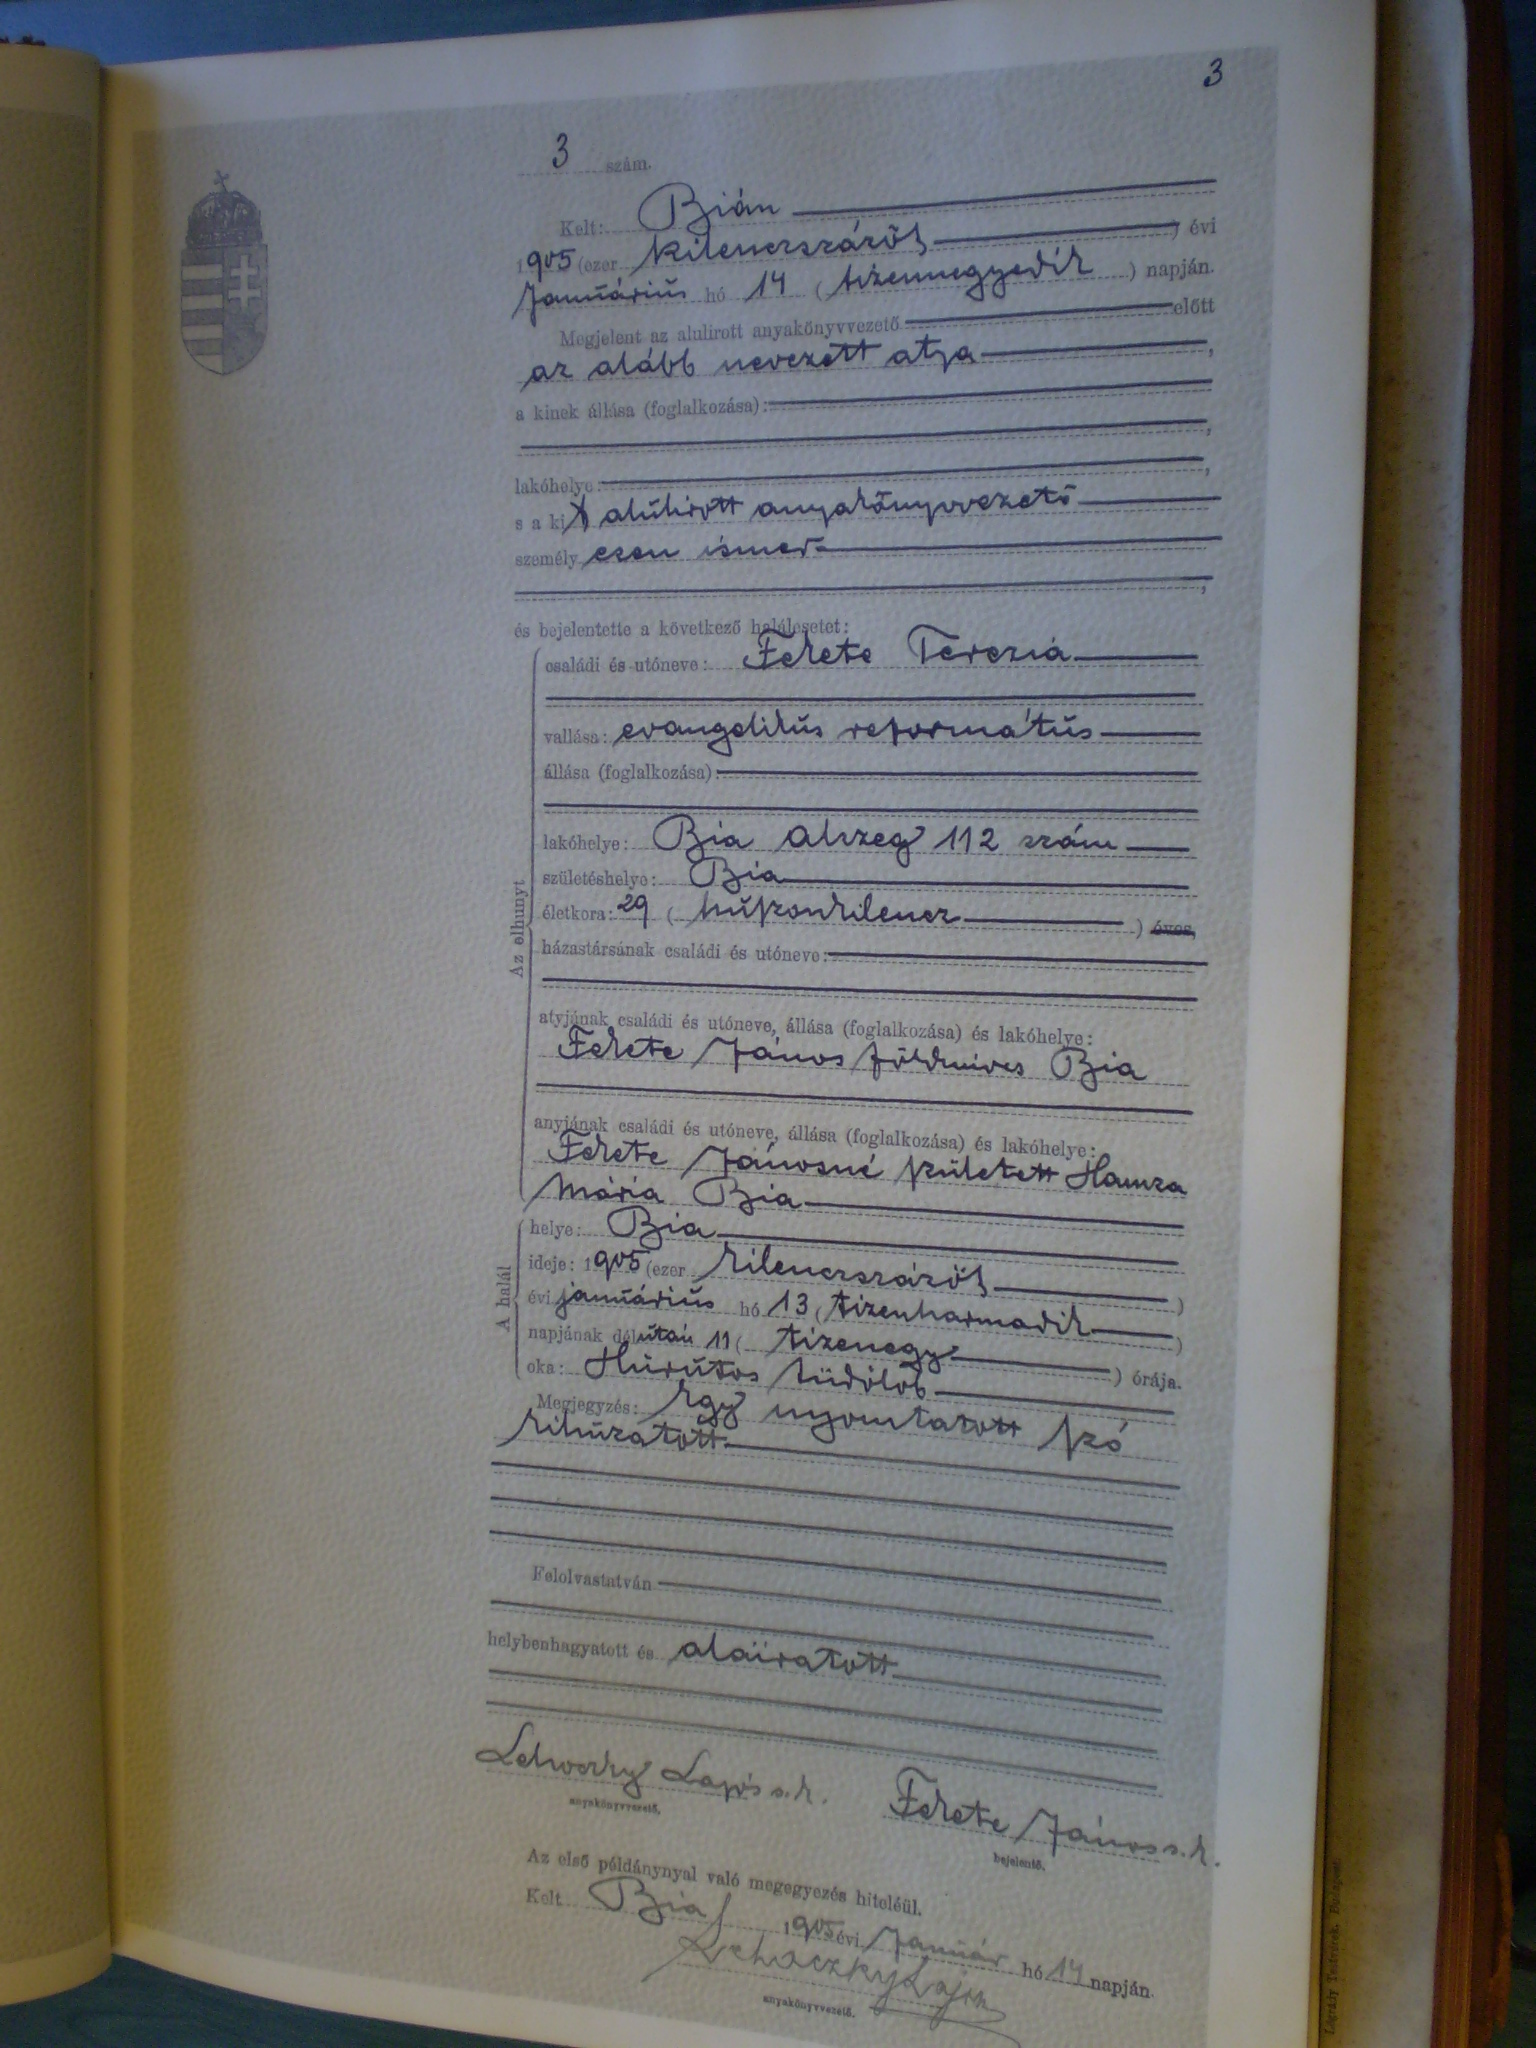 3
3 szám.
Kelt: Bián
1905 (ezer kilenczszázöt ) évi
Januárius hó 14 ( tizennegyedik ) napján.
Megjelent az alulirott anyakönyvvezető előtt
az alább nevezett atya ,
a kinek állása (foglalkozása):
,
lakóhelye: ,
s a kit alúlirott anyakönyvvezető
személyesen ismer
,
és bejelentette a következő halálesetet:
családi és utóneve: Fekete Terezia
vallása: evangelikús református
állása (foglalkozása):
lakóhelye: Bia Alszeg 112 szám
születéshelye: Bia
életkora: 29 ( húszonkilencz ) éves,
házastársának családi és utóneve:
Az elhunyt
atyjának családi és utóneve, állása (foglalkozása) és lakóhelye:
Fekete János földmives Bia
anyjának családi és utóneve, állása (foglalkozása) és lakóhelye:
Fekete Jánosné született Hamza
Mária Bia
A halál
helye: Bia
ideje: 1905 (ezer kilenczszázöt )
évi januárius hó 13 ( tizenharmadik )
napjának délután 11 ( tizenegy ) órája.
oka: Húrútos tüdőlob
Megjegyzés: Egy nyomtatott szó
kihúzatott
Felolvastatván
helybenhagyatott és aláiratott
Lehoczky Lajos s.k.
anyakönyvvezető,
Fekete János s.k.
bejelentő.
Az első példánynyal való megegyezés hiteléül.
Kelt Bia 1905 évi Január hó 14 napján.
Lehoczky Lajos
anyakönyvvezető.
Légrády Testvérek. Budapest.